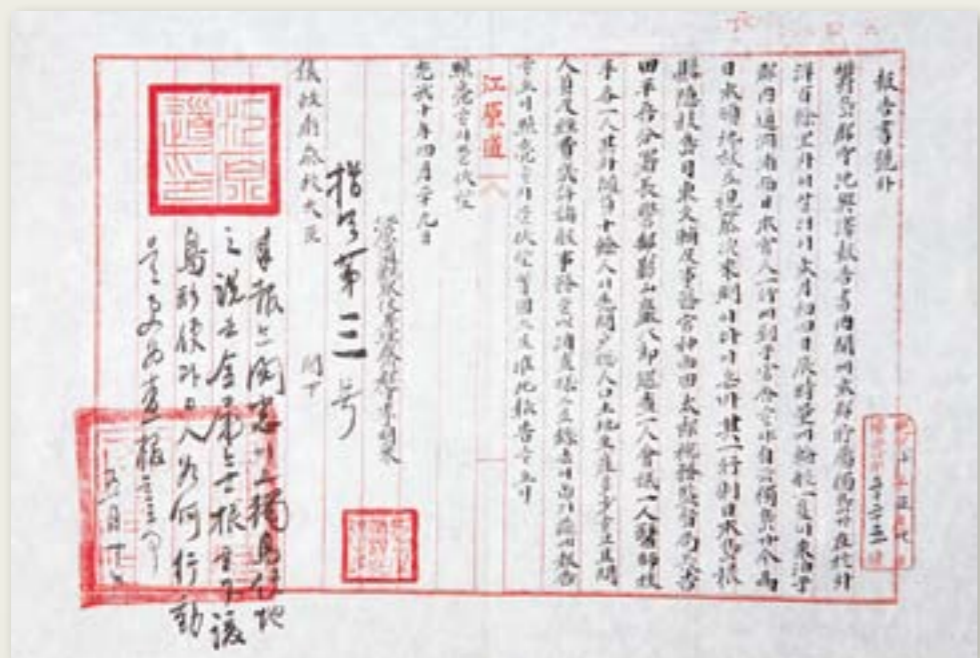 報告書號外
鬱島郡守沈興澤報告書內開에本郡所屬獨島가在於外
洋百餘里外이살더니本月初四日辰時量에輪船一隻이來泊于
郡內道洞浦而日本官人一行이到于官舍ᄒᆞ야自云獨島가今爲
日本領地故로視察次來到이다이온바其一行則日本島根
縣隱岐島司東文輔及事務官神西田太郎稅務監督局長吉
田平吾分署長警部影山巖八郎巡查一人會議一人醫師技
手各一人其外隨員十餘人이先問戶總人口土地生產多少ᄒᆞ고且問
人員及經費幾許諸般事務를以調查樣으로錄去이압기玆以報告
ᄒᆞ오니照亮ᄒᆞ시믈伏望等因으로准此報告ᄒᆞ오니
照亮ᄒᆞ시믈伏望
江原道
光武十年四月二十九日
江原道觀察使署理春川郡守李明來
議政府參政大臣 閣下
指令第三号
來報는閱悉이고獨島領地
之說은全屬無根ᄒᆞ나該
島形便과日人如何行動
을更爲查報ᄒᆞᆯ事
五月